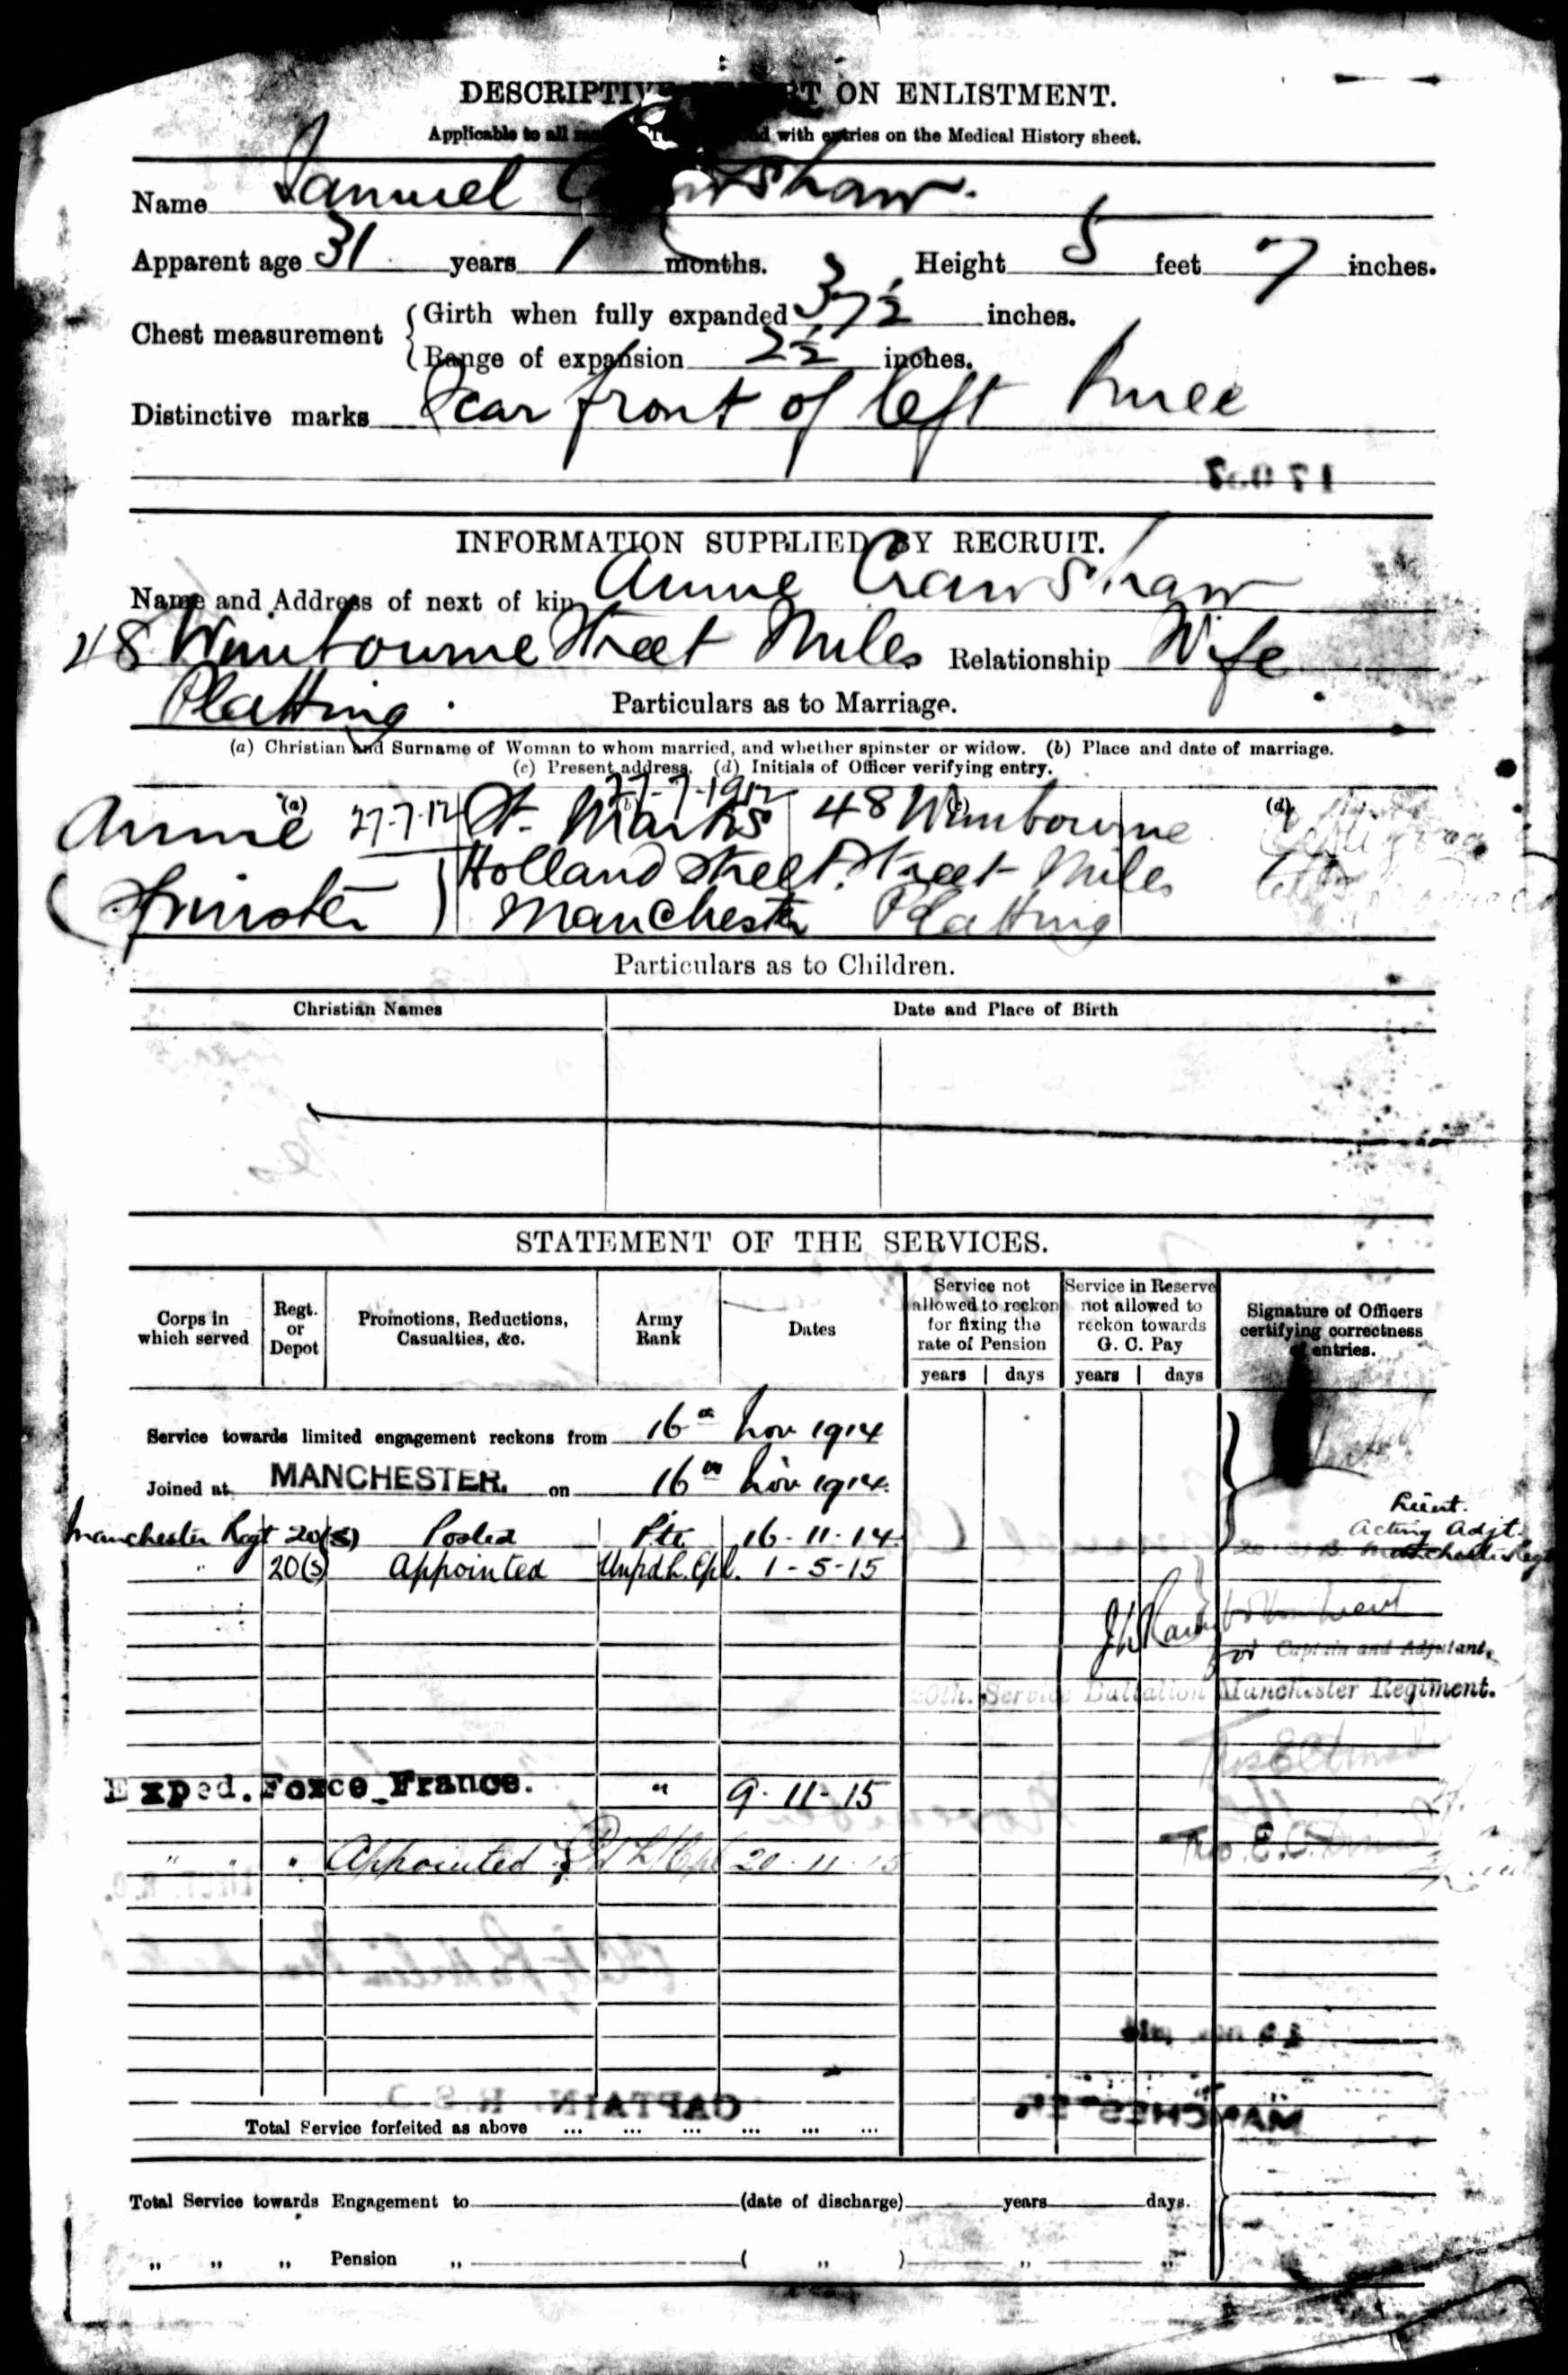 DESCRIPTIVE REPORT ON ENLISTMENT.
Applicable to all with entries on the Medical History sheet.
Name Samuel Crawshaw.
Apparent age 31 years 1 months. Height 5 feet 7 inches.
Chest measurement
Girth when fully expanded 37½ inches.
Range of expansion 2½ inches.
Distinctive marks Scar front of left knee
INFORMATION SUPPLIED BY RECRUIT.
Name and Address of next of kin Annie Crawshaw
48 Wimbourne Street Miles Relationship Wife
Platting. Particulars as to Marriage.
(a) Christian and Surname of Woman to whom married, and whether spinster or widow. (b) Place and date of marriage.
(c) Present address. (d) Initials of Officer verifying entry.
(a) (b) (c) (d)
27-7-1912
Annie 27-7-12 St. Marks 48 Wimbourne
Holland Street. Street Miles
(Spinster) Manchester Platting
Particulars as to Children.
Christian Names Date and Place of Birth
STATEMENT OF THE SERVICES.
Corps in which served Regt. or Depot Promotions, Reductions, Casualties, &c. Army Rank Dates Service not allowed to reckon for fixing the rate of Pension Service in Reserve not allowed to reckon towards G. C. Pay Signature of Officers certifying correctness of entries.
years days years days
Service towards limited engagement reckons from 16th Nov 1914
Joined at MANCHESTER. on 16th Nov 1914.
Lieut.
Acting Adjt.
Manchester Regt 20(S) Posted Pte 16-11-14.
" 20(S) Appointed Unpd L. Cpl. 1-5-15
for Captain and Adjutant,
20th. Service Battalion Manchester Regiment.
Exped. Force France. " 9-11-15
" " " Appointed Pd L/Cpl 20-11-15
Total Service forfeited as above ... ... ... ... ... ...
Total Service towards Engagement to (date of discharge) years days.
" " " Pension " ( " ) " "